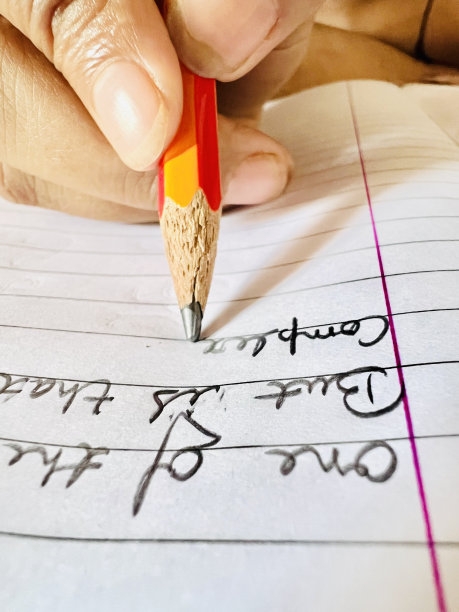 One of the
But is that
Complex